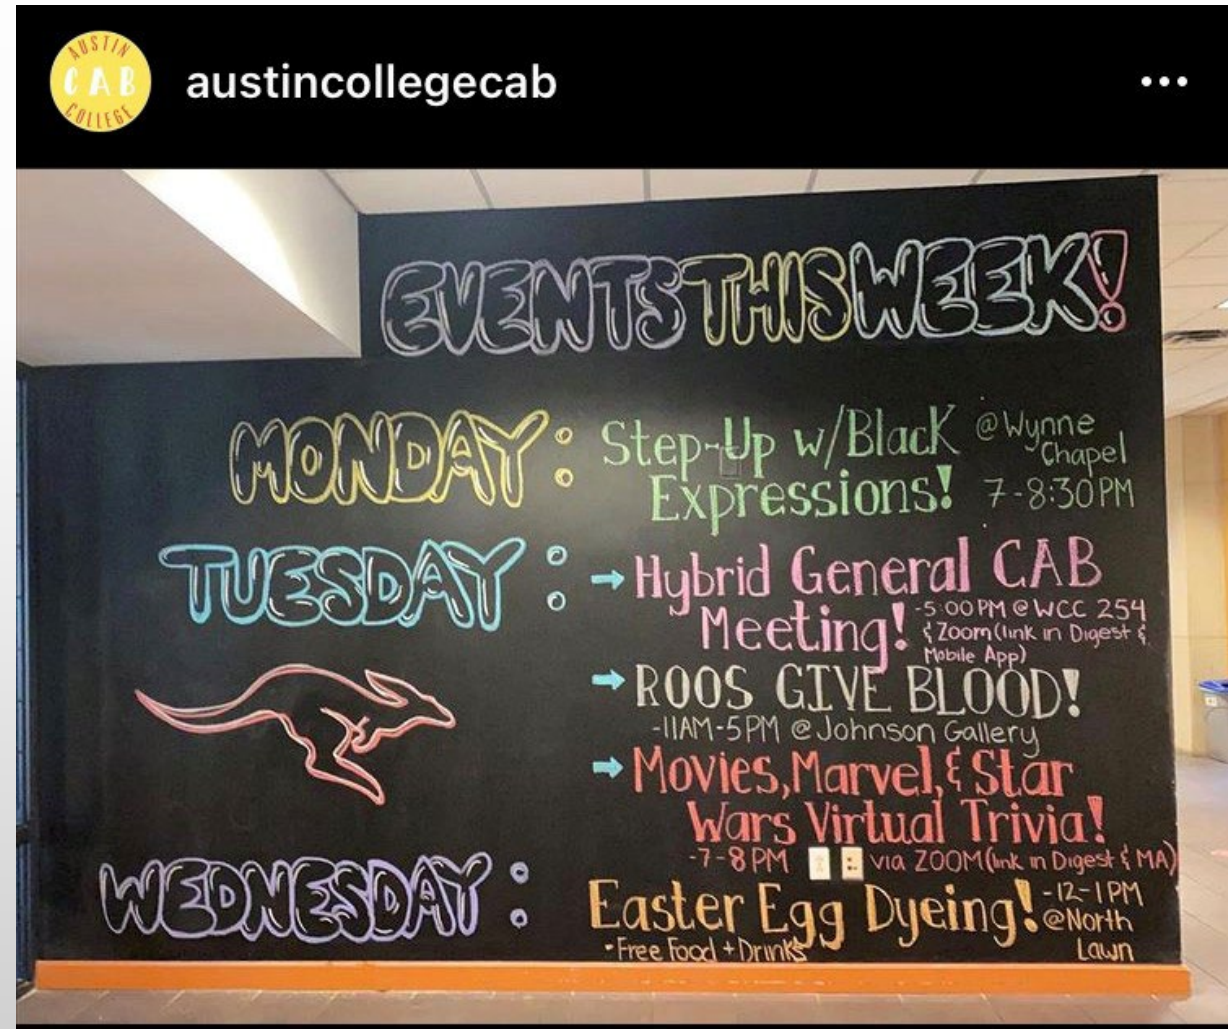 AUSTIN
CAB
COLLEGE
austincollegecab
EVENTS THIS WEEK!
MONDAY: Step-Up w/Black @Wynne
Chapel
Expressions! 7-8:30PM
TUESDAY: → Hybrid General CAB
Meeting! -5:00PM @ WCC 254
& Zoom (link in Digest &
Mobile App)
→ ROOS GIVE BLOOD!
-11AM-5PM @ Johnson Gallery
→ Movies, Marvel, & Star
Wars Virtual Trivia!
-7-8PM via ZOOM (link in Digest & MA)
WEDNESDAY: Easter Egg Dyeing! -12-1PM
@North
Lawn
•Free Food + Drinks